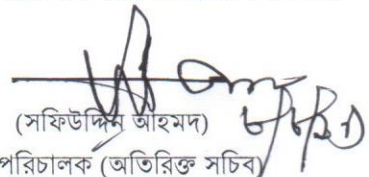 (সফিউদ্দিন আহমদ)
পরিচালক (অতিরিক্ত সচিব)